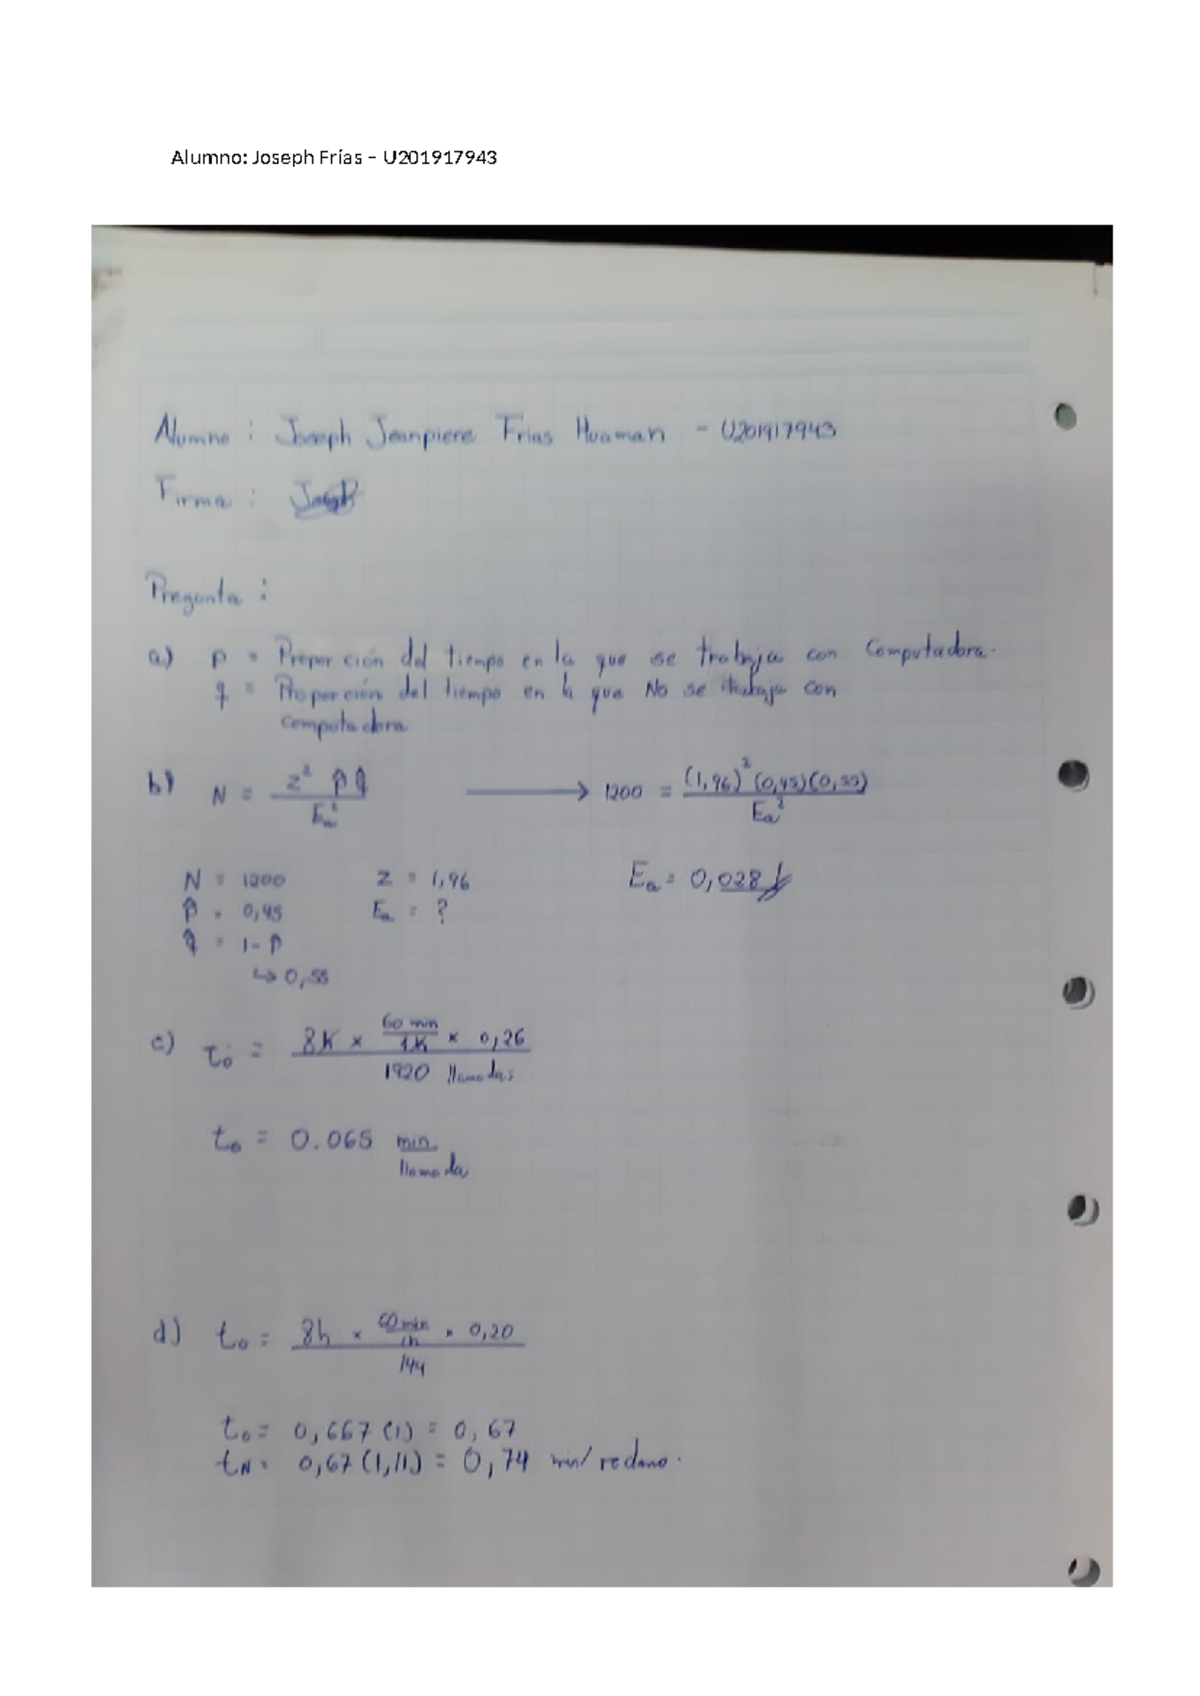 Alumno: Joseph Frías – U201917943
Alumno : Joseph Jeanpiere Frias Huaman - U201917943
Firma : Joseph
Pregunta :
a) p = Proporción del tiempo en la que se trabaja con Computadora.
q = Proporción del tiempo en la que No se trabaja con
computadora
b) N = z² p̂ q̂ / Ea² → 1200 = (1,96)² (0,45)(0,55) / Ea²
N = 1200 z = 1,96 Ea = 0,028
p̂ = 0,45 Ea = ?
q̂ = 1-p
↳ 0,55
c) to = 8K x 60 min / 1K x 0,26 / 1920 llamadas
to = 0.065 min / llamada
d) to = 8h x 60 min / 1h x 0,20 / 144
to = 0,667 (1) = 0,67
tN = 0,67 (1,11) = 0,74 min/ reclamo.